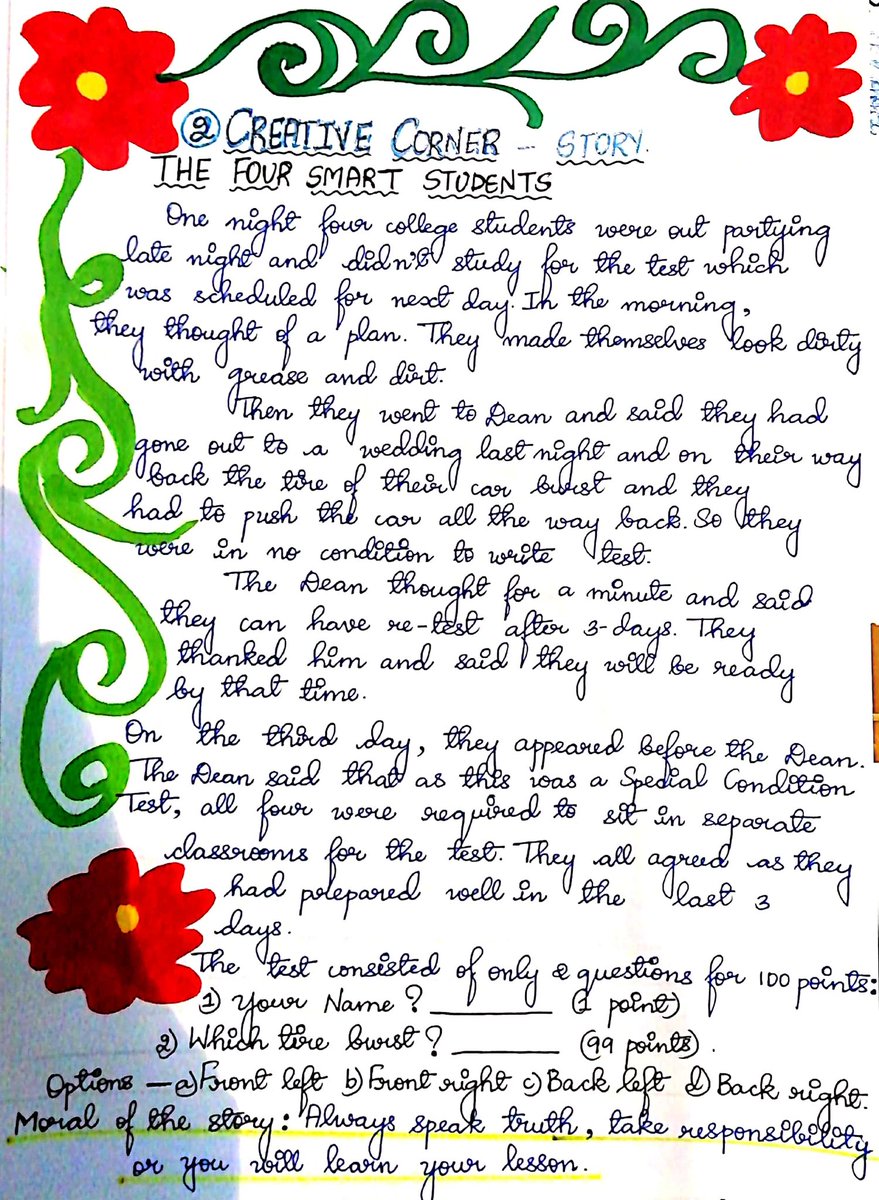 ② CREATIVE CORNER - STORY.
THE FOUR SMART STUDENTS
One night four college students were out partying
late night and didn't study for the test which
was scheduled for next day. In the morning,
they thought of a plan. They made themselves look dirty
with grease and dirt.
Then they went to Dean and said they had
gone out to a wedding last night and on their way
back the tire of their car burst and they
had to push the car all the way back. So they
were in no condition to write test.
The Dean thought for a minute and said
they can have re-test after 3-days. They
thanked him and said they will be ready
by that time.
On the third day, they appeared before the Dean.
The Dean said that as this was a Special Condition
Test, all four were required to sit in separate
classrooms for the test. They all agreed as they
had prepared well in the last 3
days.
The test consisted of only 2 questions for 100 points:
1) Your Name? ________ (1 point)
2) Which tire burst? ________ (99 points).
Options - a) Front left b) Front right c) Back left d) Back right.
Moral of the story: Always speak truth, take responsibility
or you will learn your lesson.